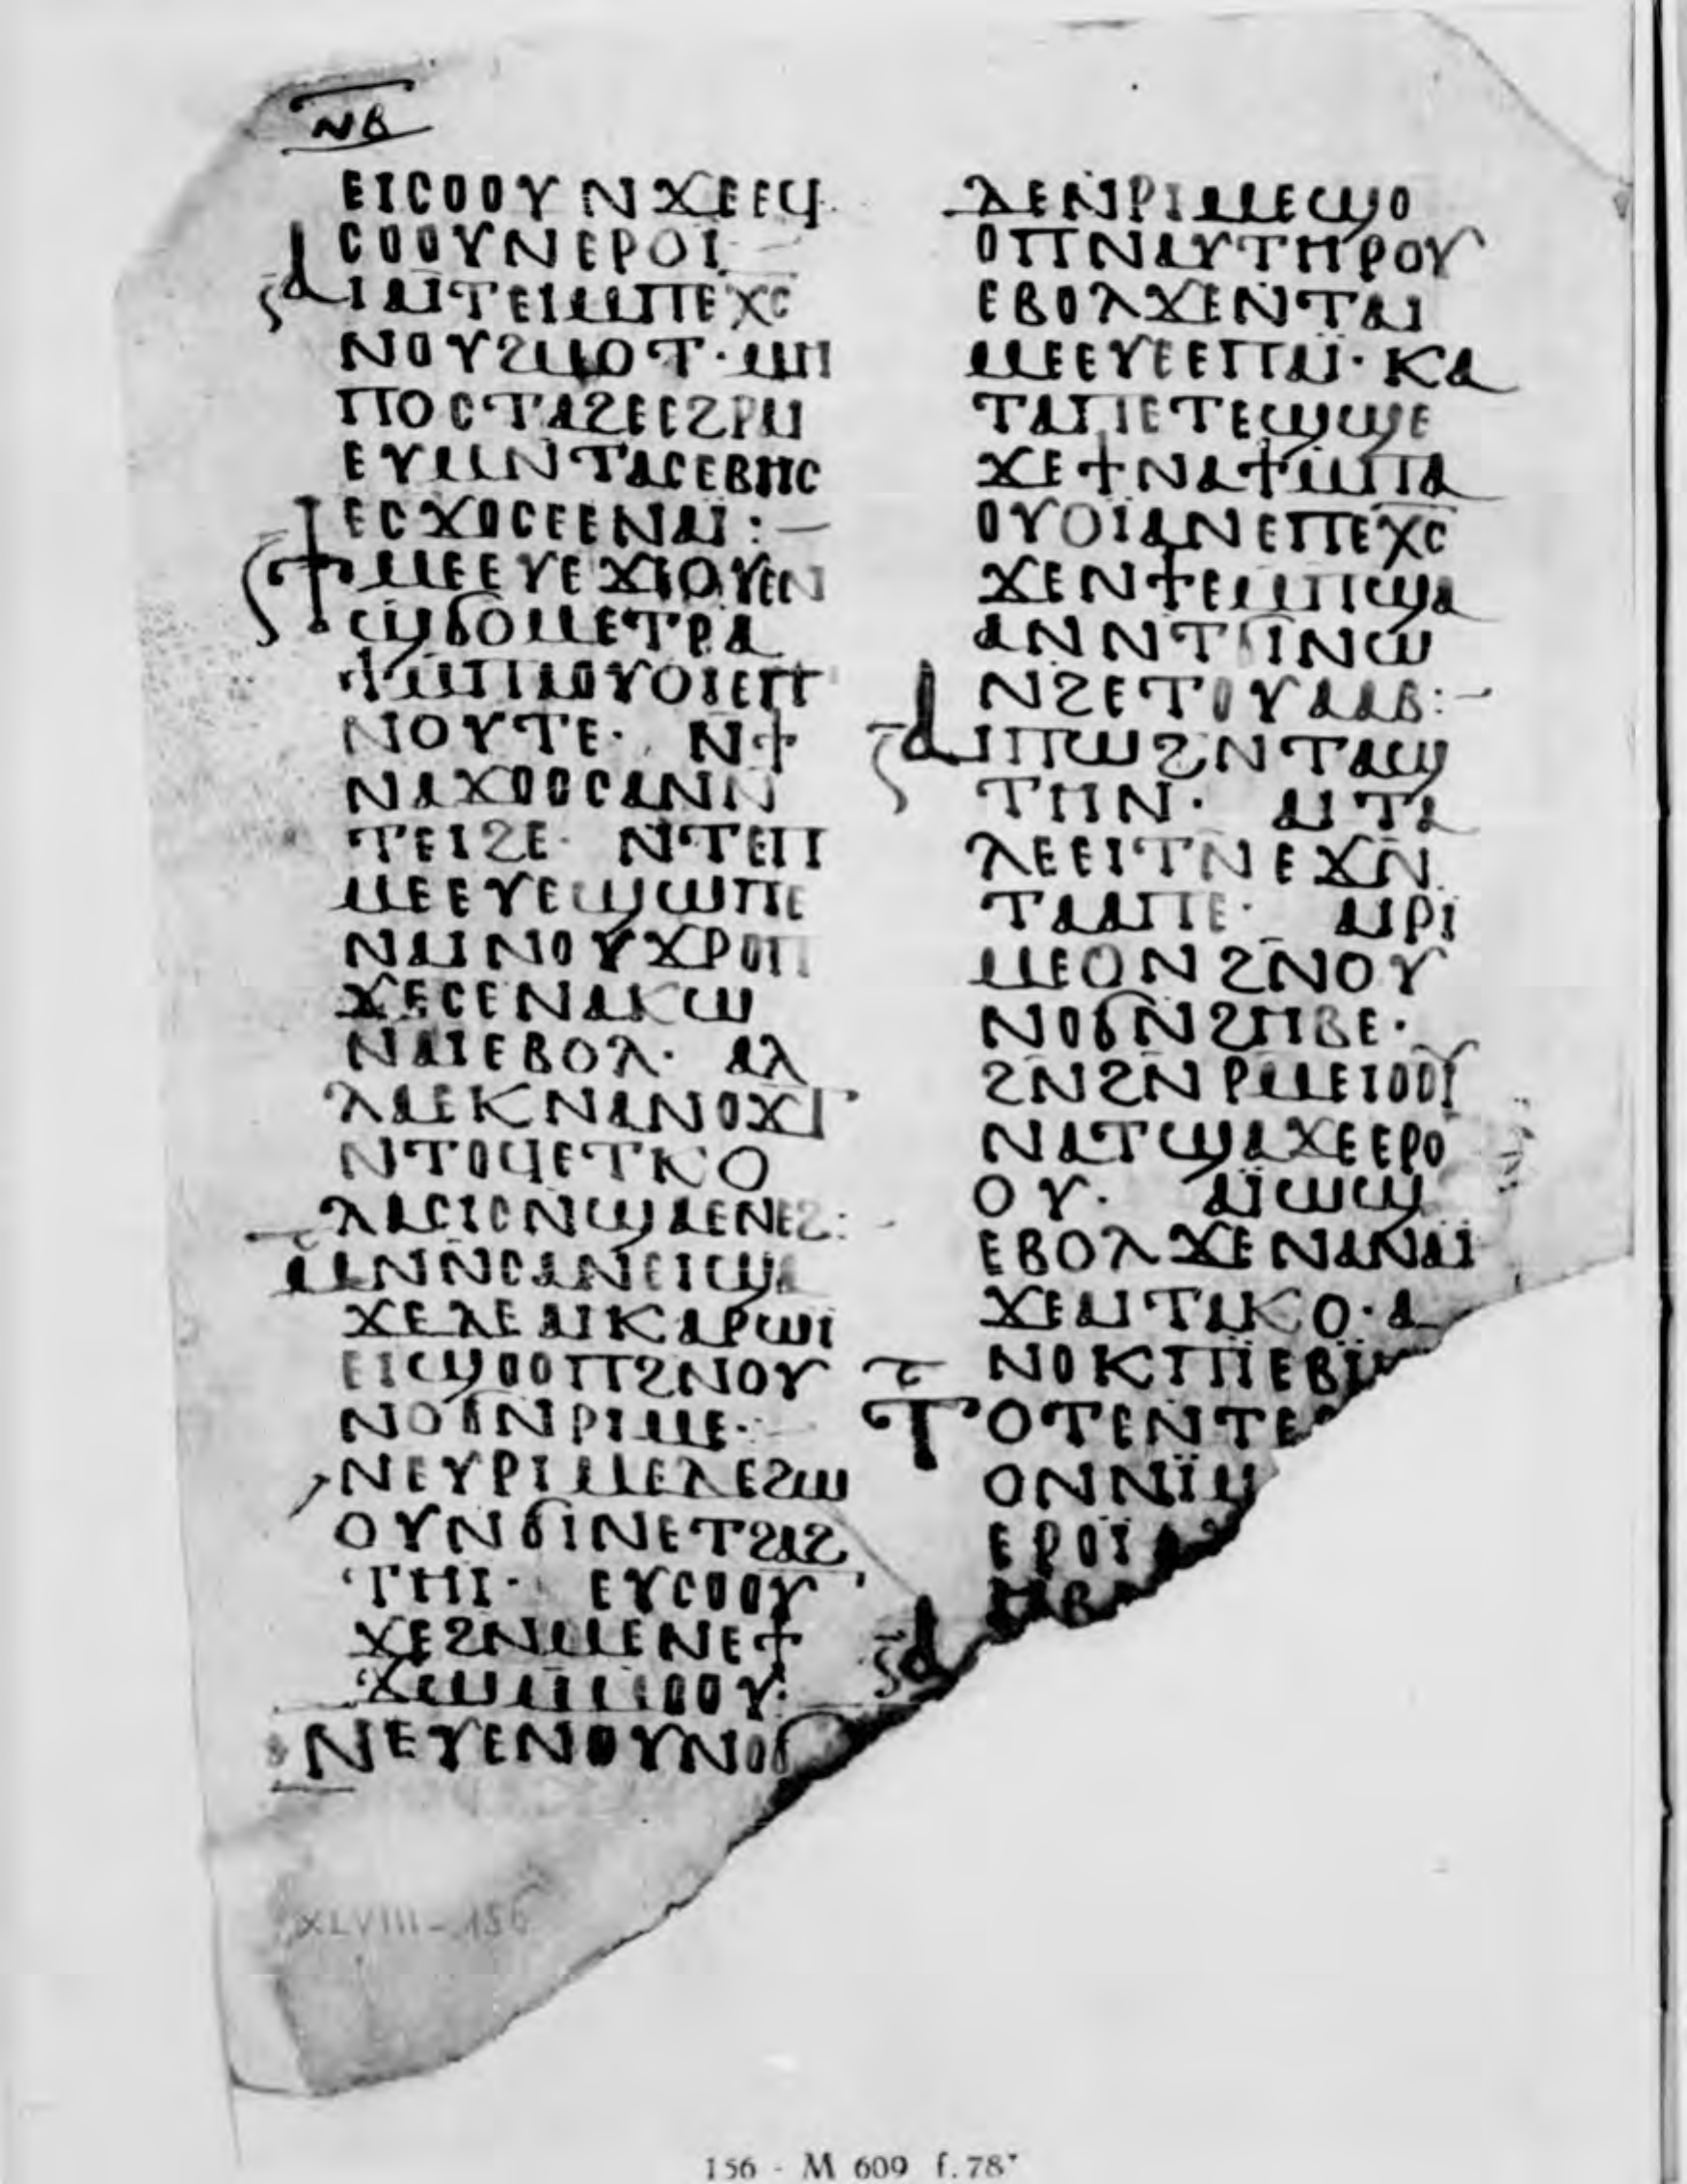 ⲛⲃ
ⲉⲓⲥⲟⲟⲩⲛϫⲉⲉϥ
ⲥⲟⲟⲩⲛⲉⲣⲟⲓ
ⲁⲓⲁⲓⲧⲉⲓⲙⲡⲉⲭⲥ
ⲛⲟⲩϩⲙⲟⲧ· ⲙⲡ
ⲡⲟⲥⲧⲁϩⲉⲉϩⲣⲁⲓ
ⲉⲩⲙⲛⲧⲁⲥⲉⲃⲏⲥ
ⲉⲥϫⲟⲥⲉⲉⲛⲁⲓ:—
ϯⲙⲉⲉⲩⲉϫⲓⲟⲩⲉⲛ
ϣϭⲟⲙⲉⲧⲣⲁ
ϯⲙⲡⲁⲟⲩⲟⲓⲉⲡ
ⲛⲟⲩⲧⲉ· ⲛϯ
ⲛⲁϫⲟⲟⲥⲁⲛⲛ
ⲧⲉⲓϩⲉ· ⲛⲧⲉⲡⲓ
ⲙⲉⲉⲩⲉϣⲱⲡⲉ
ⲛⲁⲓⲛⲟⲩⲭⲣⲟⲡ
ϫⲉⲥⲉⲛⲁⲕⲱ
ⲛⲁⲓⲉⲃⲟⲗ· ⲁⲗ
ⲗⲁⲉⲕⲛⲁⲛⲟϫⲧ
ⲛⲧⲟϥⲉⲧⲕⲟ
ⲗⲁⲥⲓⲥⲛϣⲁⲉⲛⲉϩ:
ⲙⲛⲛⲥⲁⲛⲉⲓϣⲁ
ϫⲉⲇⲉⲁⲓⲕⲁⲣⲱⲓ
ⲉⲓϣⲟⲟⲡϩⲛⲟⲩ
ⲛⲟϭⲛⲣⲓⲙⲉ·
ⲛⲉⲩⲣⲓⲙⲉⲇⲉϩⲱ
ⲟⲩⲛϭⲓⲛⲉⲧϩⲁϩ
ⲧⲏⲓ· ⲉⲩⲥⲟⲟⲩ
ϫⲉϩⲛⲙⲉⲛⲉϯ
ϫⲱⲙⲙⲟⲟⲩ:
ⲛⲉⲩⲉⲛⲟⲩⲛⲟϭ
ⲇⲉⲛⲣⲓⲙⲉϣⲟ
ⲟⲡⲛⲁⲩⲧⲏⲣⲟⲩ
ⲉⲃⲟⲗϫⲉⲛⲧⲁⲓ
ⲙⲉⲉⲩⲉⲉⲡⲁⲓ· ⲕⲁ
ⲧⲁⲡⲉⲧⲉϣϣⲉ
ϫⲉϯⲛⲁϯⲙⲡⲁ
ⲟⲩⲟⲓⲁⲛⲉⲡⲉⲭⲥ
ϫⲉⲛϯⲉⲙⲡϣⲁ
ⲁⲛⲛⲧϭⲓⲛⲱ
ⲛϩⲉⲧⲟⲩⲁⲁⲃ:—
ⲁⲓⲡⲱϩⲛⲧⲁϣ
ⲧⲏⲛ· ⲁⲓⲧⲁ
ⲗⲉⲉⲓⲧⲛⲉϫⲛ
ⲧⲁⲁⲡⲉ· ⲁⲓⲣⲓ
ⲙⲉⲟⲛϩⲛⲟⲩ
ⲛⲟϭⲛϩⲏⲃⲉ·
ϩⲛϩⲛⲣⲙⲉⲓⲟⲟⲩ
ⲛⲁⲧϣⲁϫⲉⲉⲣⲟ
ⲟⲩ· ⲁⲓⲱϣ
ⲉⲃⲟⲗϫⲉⲛⲁⲛⲁⲓ
ϫⲉⲁⲓⲧⲁⲕⲟ·ⲁ
ⲛⲟⲕⲡⲓⲉⲃⲓⲏ
ⲧⲟⲧⲉⲛⲧⲉⲣ
ⲟⲛⲛⲓⲙ
ⲉⲣⲟⲓ
ⲏⲃ
ⲁ
XLVIII-156
156 - M 609 f. 78ᵛ